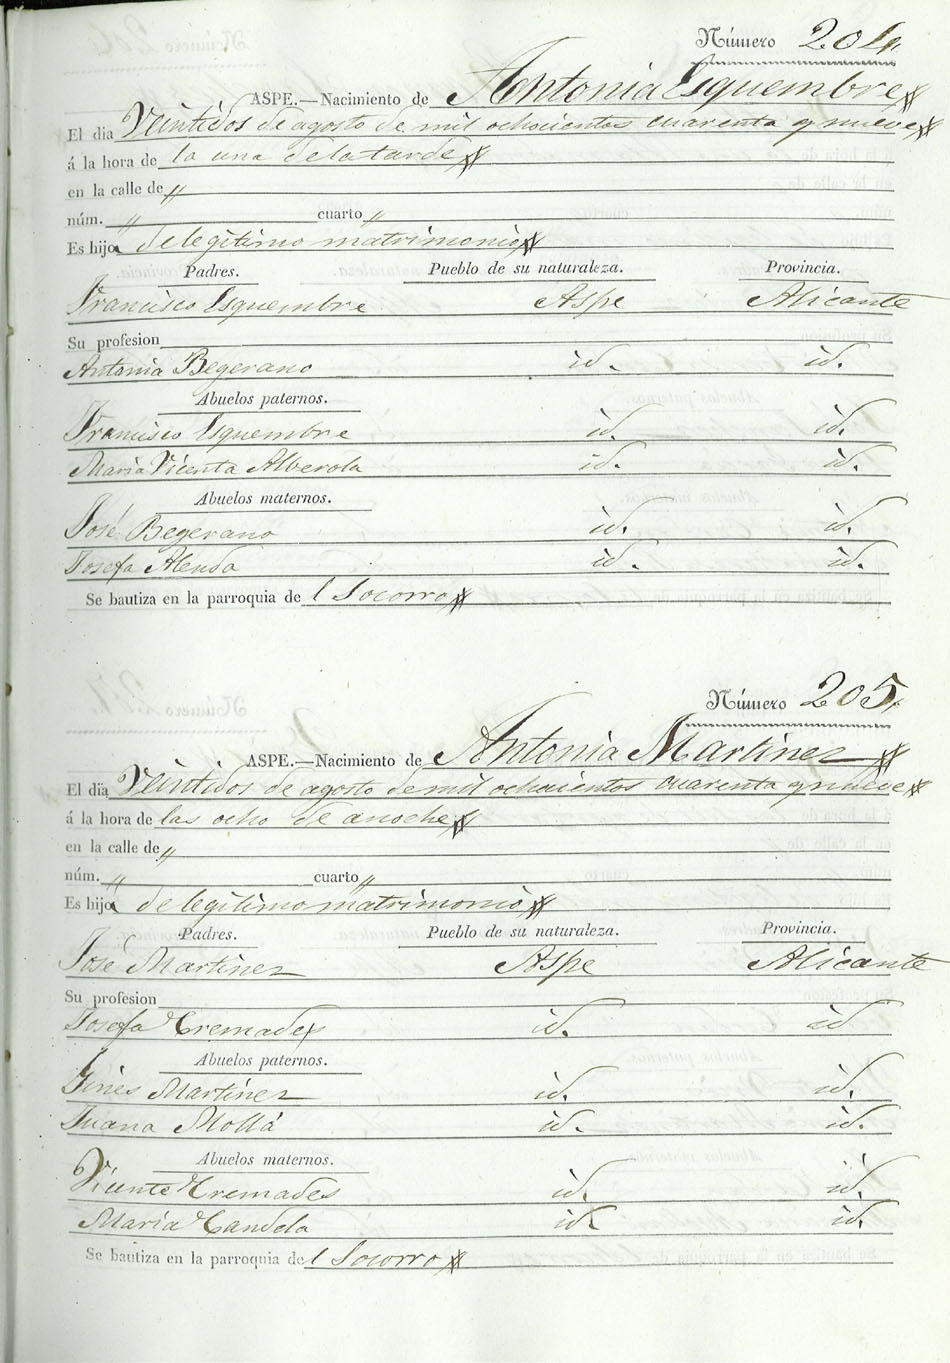 Número 204.
ASPE.—Nacimiento de Antonia Esquembre
El dia Veintidos de agosto de mil ochocientos cuarenta y nueve
á la hora de la una de la tarde
en la calle de "
núm. " cuarto "
Es hija de legitimo matrimonio
Padres. Pueblo de su naturaleza. Provincia.
Francisco Esquembre Aspe Alicante
Su profesion
Antonia Begerano id. id.
Abuelos paternos.
Francisco Esquembre id. id.
Maria Vicenta Alberola id. id.
Abuelos maternos.
José Begerano id. id.
Josefa Alenda id. id.
Se bautiza en la parroquia de l Socorro
Número 205.
ASPE.—Nacimiento de Antonia Martinez
El dia Veintidos de agosto de mil ochocientos cuarenta y nueve
á la hora de las ocho de anoche
en la calle de "
núm. " cuarto "
Es hija de legitimo matrimonio
Padres. Pueblo de su naturaleza. Provincia.
José Martinez Aspe Alicante
Su profesion
Josefa Cremades id. id
Abuelos paternos.
Gines Martinez id. id.
Juana Mollá id. id.
Abuelos maternos.
Vicente Cremades id. id.
Maria Candela id. id.
Se bautiza en la parroquia de l Socorro